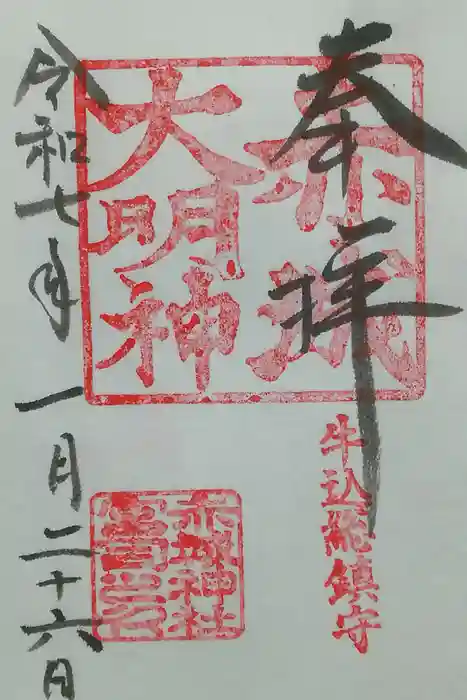 奉拝
赤城
大明神
牛込総鎮守
赤城神社
令和七年一月二十六日